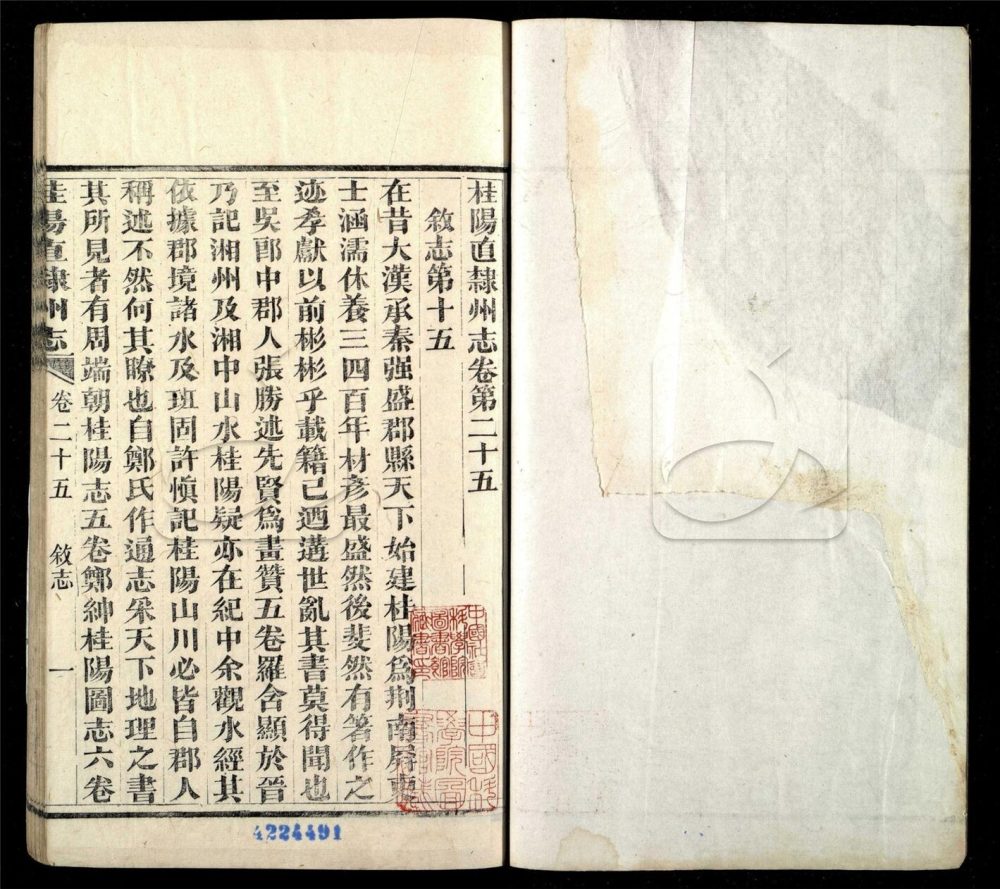 桂陽直隸州志卷第二十五
敘志第十五
在昔大漢承秦强盛郡縣天下始建桂陽爲荆南
士涵濡休養三四百年材彥最盛然後斐然有著作之
迹孝獻以前彬彬乎載籍已迺遘世亂其書莫得聞也
至吳郎中郡人張勝述先賢爲畫贊五卷羅含顯於晉
乃記湘州及湘中山水桂陽疑亦在紀中余觀水經其
依據郡境諸水及班固許愼記桂陽山川必皆自郡人
稱述不然何其瞭也自鄭氏作通志采天下地理之書
其所見者有周端朝桂陽志五卷鄭紳桂陽圖志六卷
桂陽直隸州志
卷二十五
敘志
一
4224491